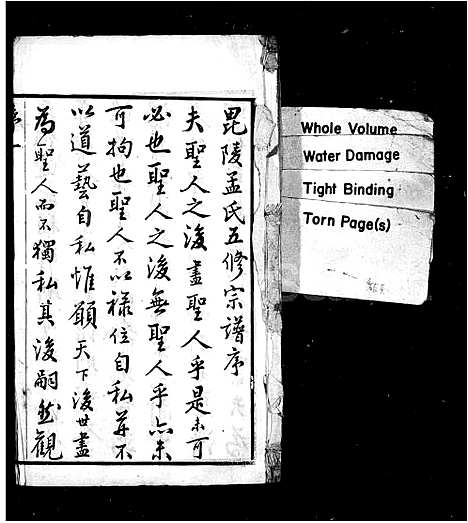 毘陵孟氏五修宗譜序
夫聖人之後盡聖人乎是未可
必也聖人之後無聖人乎亦未
可拘也聖人不以祿位自私并不
以道藝自私惟願天下後世盡
為聖人而不獨私其後嗣然觀
Whole Volume
Water Damage
Tight Binding
Torn Page(s)